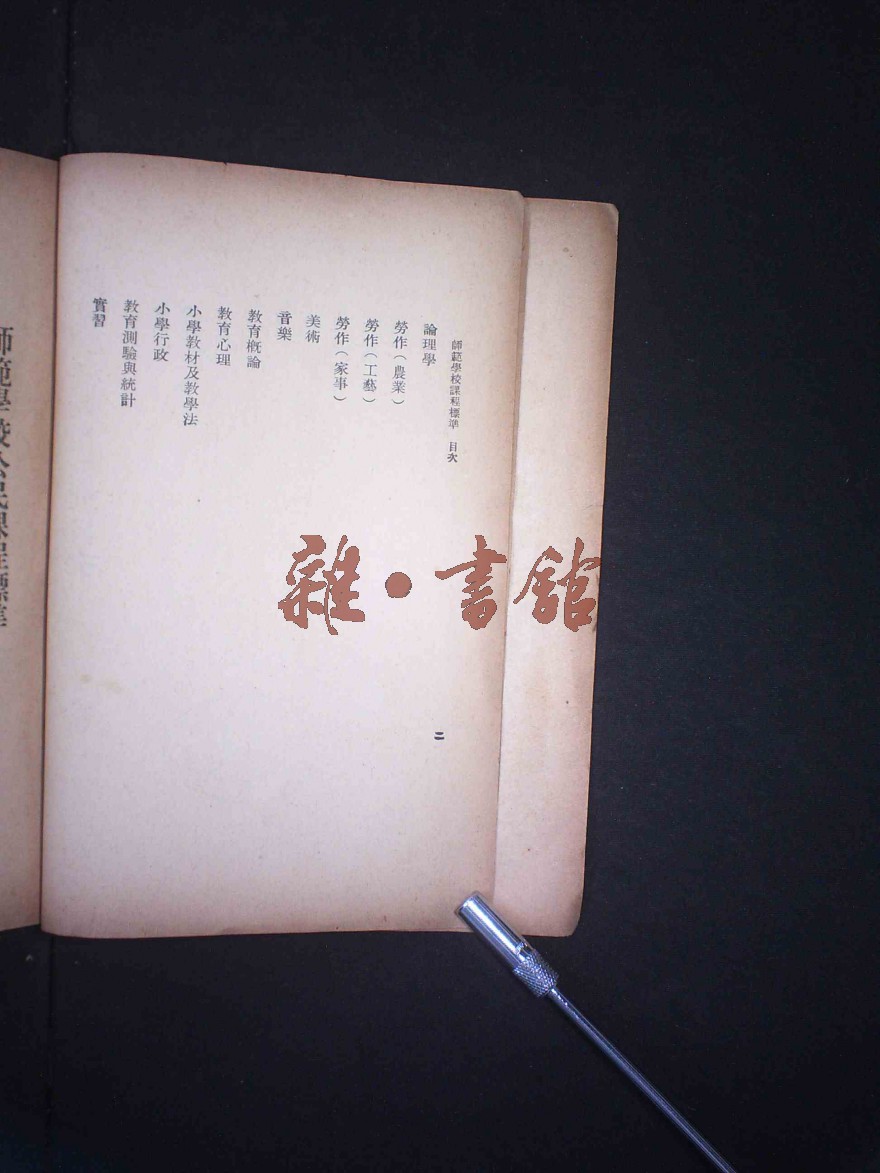 師範學校課程標準 目次
論理學
勞作(農業)
勞作(工藝)
勞作(家事)
美術
音樂
教育概論
教育心理
小學教材及教學法
小學行政
教育測驗與統計
實習
二
師範學校公民課程標準
雜·書館